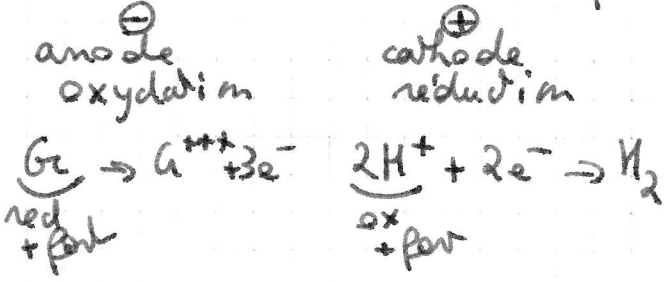 ⊖
anode
oxydation
Cr → Cr⁺⁺⁺+3e⁻
red
+ fort
⊕
cathode
réduction
2H⁺ + 2e⁻ → H₂
ox
+ fort